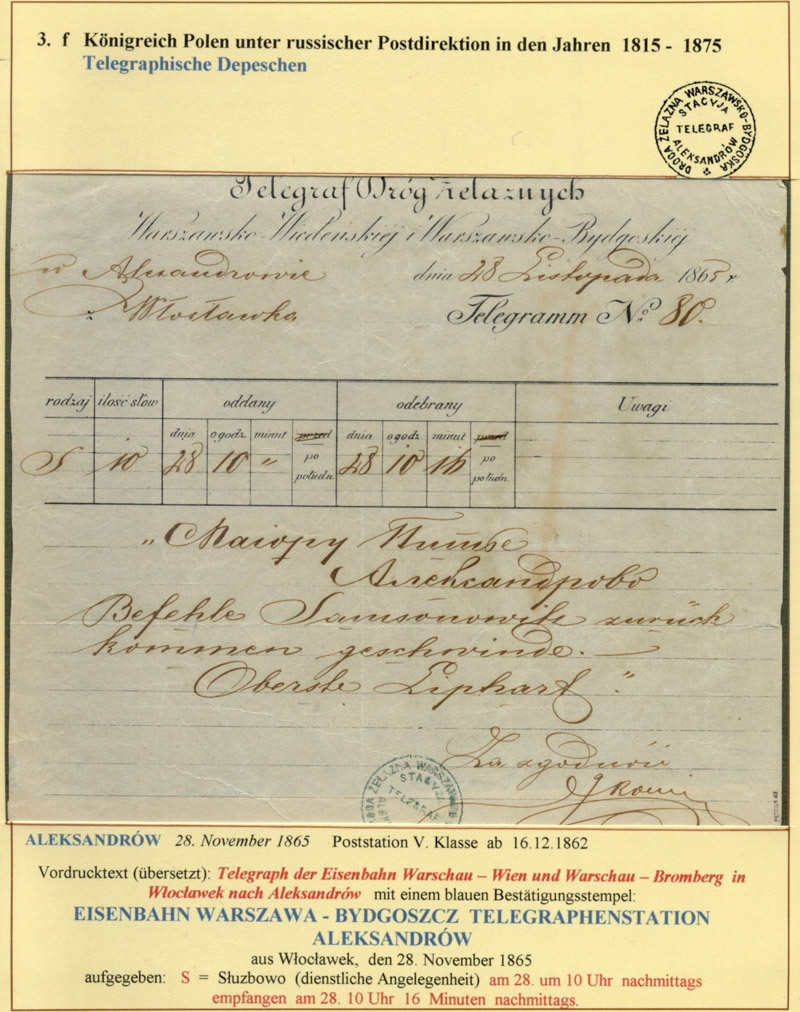 3. f Königreich Polen unter russischer Postdirektion in den Jahren 1815 - 1875
Telegraphische Depeschen
DROGA ŻELAZNA WARSZAWSKO-BYDGOSKA
STACYJA
TELEGRAF
ALEKSANDRÓW
Telegraf Dróg Żelaznych
Warszawsko-Wiedeńskiéj i Warszawsko-Bydgoskiéj
w Alexandrowie dnia 28 Listopada 1865 r
z Włocławka Telegramm No. 80.
rodzaj ilość słow oddany odebrany Uwagi
dnia o godz. minut przed po południ. dnia o godz. minut przed po połudn.
S 10 28 10 " 28 10 16
„Маіору
Александрово
Befehle Samsonowitz zurück
kommen geschwinde. —
Oberste Liphart"
Za zgodność
DROGA ŻELAZNA WARSZAWSKO
STACYJA
TELEGRAF
ALEKSANDRÓW 28. November 1865 Poststation V. Klasse ab 16.12.1862
Vordrucktext (übersetzt): Telegraph der Eisenbahn Warschau – Wien und Warschau – Bromberg in
Włocławek nach Aleksandrów mit einem blauen Bestätigungsstempel:
EISENBAHN WARSZAWA - BYDGOSZCZ TELEGRAPHENSTATION
ALEKSANDRÓW
aus Włocławek, den 28. November 1865
aufgegeben: S = Słuzbowo (dienstliche Angelegenheit) am 28. um 10 Uhr nachmittags
empfangen am 28. 10 Uhr 16 Minuten nachmittags.